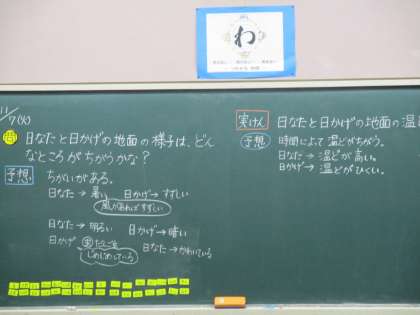 わ
11/7(火)
問 日なたと日かげの地面の様子は、どん
なところがちがうかな？
予想 ちがいがある。
日なた→暑い 日かげ→すずしい
風があればすずしい
日なた→明るい 日かげ→暗い
日かげ
じめじめしている
日なた→かわいている
実けん 日なたと日かげの地面の温
予想 時間によって温どがちがう。
日なた→温どが高い。
日かげ→温どがひくい。